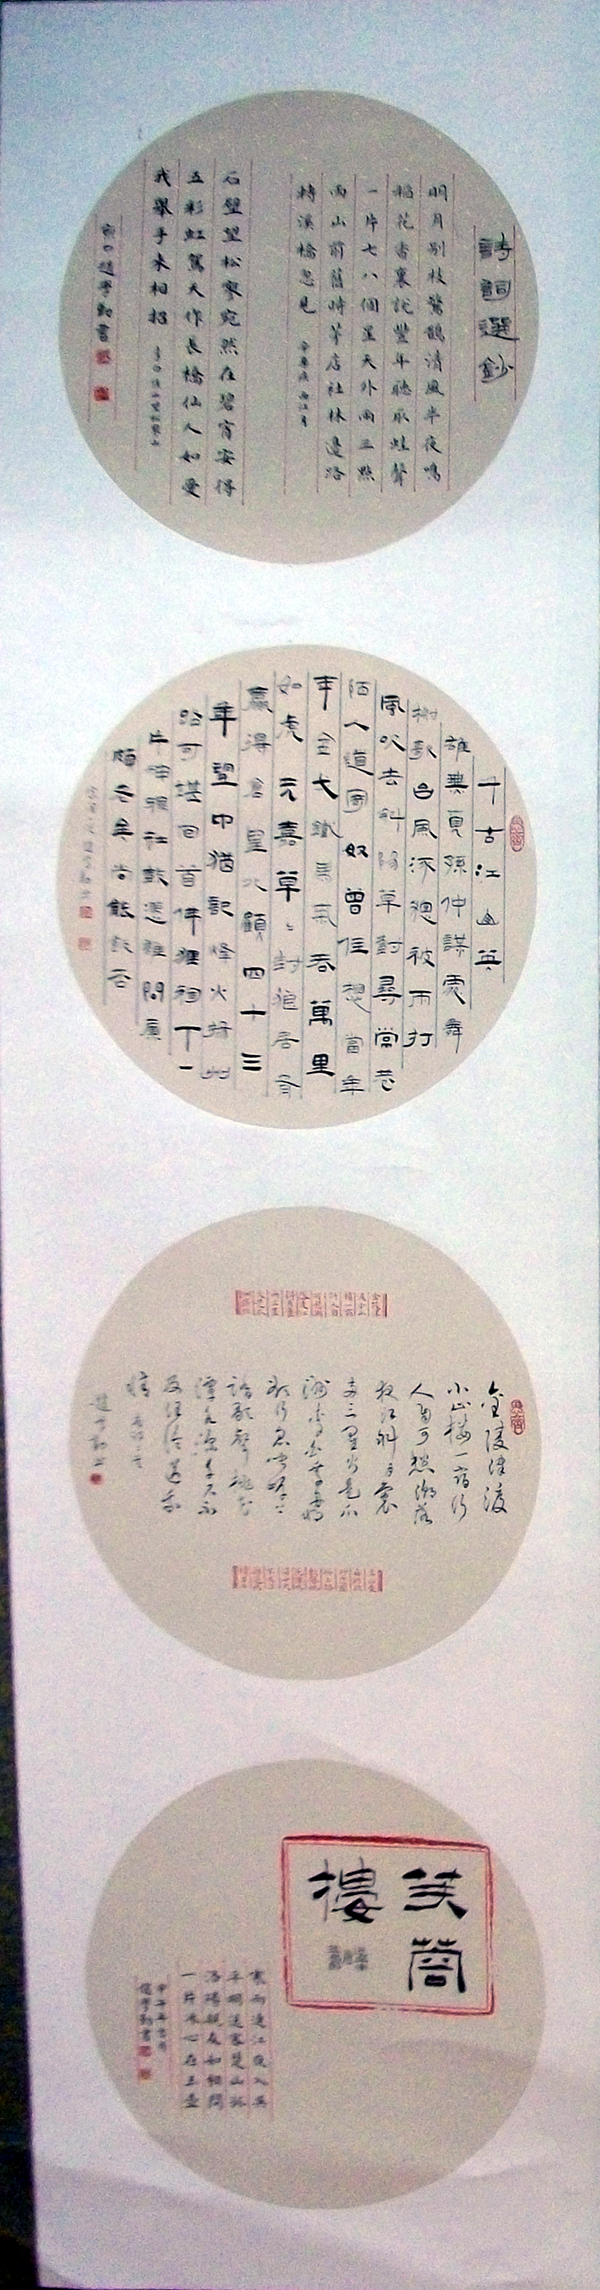 詩詞選鈔
明月別枝驚鵲清風半夜鳴
稻花香裏說豐年聽取蛙聲
一片七八個星天外兩三點
雨山前舊時茅店社林邊路
轉溪橋忽見 辛棄疾 西江月
石壁望松寥宛然在碧霄安得
五彩虹駕天作長橋仙人如愛
我舉手來相招 李白焦山望松寥山
趙學勤書
千古江山英
雄無覓孫仲謀處舞
榭歌台風流總被雨打
風吹去斜陽草樹尋常巷
陌人道寄奴曾住想當年
金戈鐵馬氣吞萬里
如虎元嘉草々封狼居胥
贏得倉皇北顧四十三
年望中猶記烽火揚州
路可堪回首佛狸祠下一
片神鴉社鼓憑誰問廉
頗老矣尚能飯否
趙學勤書
金陵津渡
小山樓一宿行
人自可愁潮落
夜江斜月裏
兩三星火是瓜
洲李白乘舟將
欲行忽聞岸上
踏歌聲桃花
潭水深千尺不
及汪倫送我
情
趙學勤書
芙蓉
樓
寒雨連江夜入吳
平明送客楚山孤
洛陽親友如相問
一片冰心在玉壺
甲午年
趙學勤書